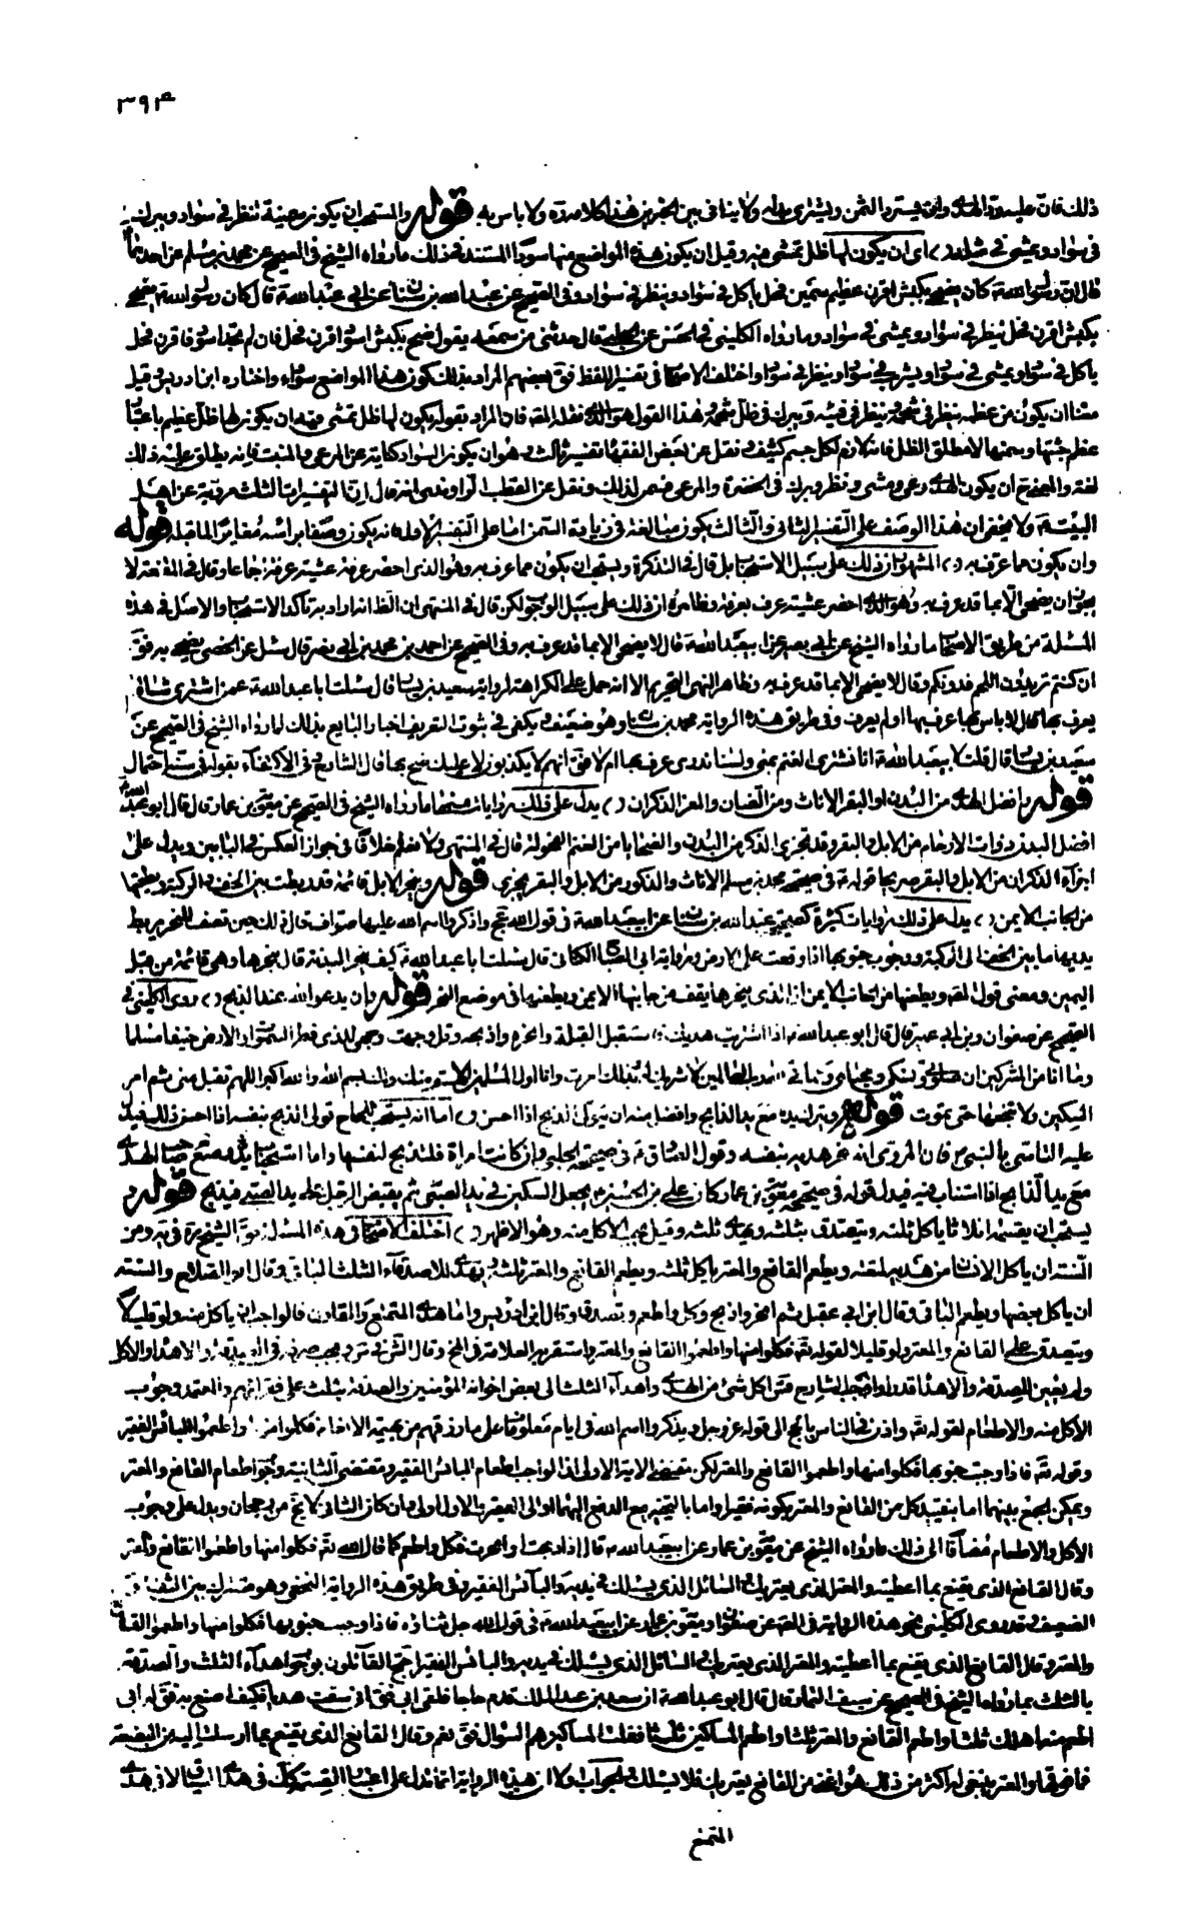 ٣٩٤
ذلك فان عليه ود الهدى وان يسترد الثمن ويشترى بدله ولا ينافى بين الخبرين هذا كلامه ره ولا باس به قوله والمستحب ان يكون سمينة تنظر فى سواد ويبرك
فى سواد ويمشى فى مثله اى ان يكون لها ظل تمشى فيه وقيل ان يكون هذه المواضع منها سودا المستند فى ذلك ما رواه الشيخ فى الصحيح عن محمد بن مسلم عن احدهما
قال ان رسول الله ص كان يضحى بكبش اقرن عظيم سمين فحل ياكل فى سواد وينظر فى سواد وفى الصحيح عن عبد الله بن سنان عن ابى عبد الله ع قال كان رسول الله ص يضحى
بكبش اقرن فحل ينظر فى سواد ويمشى فى سواد وما رواه الكلينى فى الحسن عن الحلبى قال حدثنى من سمعه يقول ضح بكبش اسود اقرن فحل فان لم تجد اسود فاقرن فحل
ياكل فى سواد ويمشى فى سواد ويشرب فى سواد وينظر فى سواد واختلف الاصحاب فى تفسير اللفظ فق بعضهم المراد بذلك كون هذه المواضع سوداء واختاره ابن ادريس وقيل
معناه ان يكون من عظمه ينظر فى شحمه وينظر فى فيئه ويبرك فى ظل شحمه وهذا القول هو الذى نقله المص فان المراد بقوله يكون لها ظل تمشى فيه ان يكون لها ظل عظيم باعتبار
عظم جثتها وسمنها لا مطلق الظل فانه لازم لكل جسم كثيف ونقل عن بعض الفقهاء تفسير ثالث وهو ان يكون السواد كناية عن المرعى والنبت فانه يطلق عليه ذلك
لغة والمعنى ح ان يكون الهدى رعى ومشى ونظر وبرك فى الخضرة والمرعى فسمن لذلك ونقل عن القطب الراوندى انه قال ان التفسيرات الثلث مروية عن اهل
البيت ع ولا يخفى ان هذا الوصف على التفسير الثانى والثالث يكون مبالغة فى زيادة السمن اما على التفسير الاول فانه يكون وصفا براسه مغايرا لما قبله قوله
وان يكون مما عرف به المشهور ان ذلك على سبيل الاستحباب بل قال فى التذكرة ويستحب ان يكون مما عرف به وهو الذى احضر عرفة عشية عرفة اجماعا وقال فى المقنعة لا
يجوز ان يضحى الا بما قد عرف به وهو الذى احضر عشية عرفة بعرفة وظاهره ان ذلك على سبيل الوجوب لكن قال فى المنتهى ان الظ انه اراد به تاكد الاستحباب والاصل فى هذه
المسئلة من طريق الاصحاب ما رواه الشيخ عن ابى بصير عن ابى عبد الله ع قال لا يضحى الا بما قد عرف به وفى الصحيح عن احمد بن محمد بن ابى نصر قال سئل عن الخصى يضحى به فق
ان كنتم تريدون اللحم فدونكم وقال لا يضحى الا بما قد عرف به وظاهر النهى التحريم الا انه حمل على الكراهة لرواية سعيد بن يسار قال سئلت ابا عبد الله ع عمن اشترى شاة
يعرف بها قال لا باس بها عرف بها او لم يعرف وفى طريق هذه الرواية محمد بن سنان وهو ضعيف ويكفى فى ثبوت التعريف اخبار البايع بذلك لما رواه الشيخ فى الصحيح عن
سعيد بن يسار قال قلت لابى عبد الله ع انا نشترى الغنم بمنى ولسنا ندرى عرف بها ام لا فق انهم لا يكذبون لا عليك ضح بها قال الشارح وفى الاكتفاء بقوله فى سنه احتمال
قوله وافضل الهدى من البدن او البقر الاناث ومن الضان والمعز الذكران يدل على ذلك روايات منها ما رواه الشيخ فى الصحيح عن معوية بن عمار قال قال ابو عبد الله ع
افضل البدن ذوات الارحام من الابل والبقر وقد تجزى الذكورة من البدن والضحايا من الغنم الفحولة قال فى المنتهى ولا نعلم خلافا فى جواز العكس فى البابين ويدل على
اجزاء الذكران من الابل والبقر صريحا قوله ع فى صحيحة محمد بن مسلم الاناث والذكور من الابل والبقر يجزى قوله وينحر الابل قائمة قد ربطت بين الخف والركبة ويطعنها
من الجانب الايمن يدل على ذلك روايات كثيرة كصحيحة عبد الله بن سنان عن ابى عبد الله ع فى قول الله عج واذكروا اسم الله عليها صواف قال ذلك حين تصف للنحر يربط
يديها ما بين الخف الى الركبة ووجوب جنوبها اذا وقعت على الارض ورواية ابى الصباح الكنانى قال سئلت ابا عبد الله ع كيف تنحر البدنة قال ينحرها وهى قائمة من قبل
اليمين ومعنى قول المص ويطعنها من الجانب الايمن ان الذى ينحرها يقف من جانبها الايمن ويطعنها فى موضع النحر قوله وان يدعو الله عند الذبح روى الكلينى فى
الصحيح عن صفوان وبن ابى عمير قال قال ابو عبد الله ع اذا اشتريت هديك فاستقبل القبلة وانحره واذبحه وقل وجهت وجهى للذى فطر السموات والارض حنيفا مسلما
وما انا من المشركين ان صلوتى ونسكى ومحياى ومماتى لله رب العالمين لا شريك له وبذلك امرت وانا اول المسلمين اللهم منك ولك بسم الله والله اكبر اللهم تقبل منى ثم امر
السكين ولا تنخعها حتى تموت قوله ويترك يده مع يد الذابح وافضل منه ان يتولى الذبح اذا احسن اما انه يستحب للحاج تولى الذبح بنفسه اذا احسن ذلك فيدل
عليه التاسى بالنبى ص فان المروى انه نحر هديه بنفسه وقول الصادق ع فى صحيحة الحلبى وان كانت امراة فلتذبح لنفسها واما استحباب وضع صاحب الهدى يده
مع يد الذابح اذا استناب فيه فيدل قوله فى صحيحة معوية بن عمار كان على بن الحسين ع يجعل السكين فى يد الصبى ثم يقبض الرجل على يد الصبى فيذبح قوله
يستحب ان يقسمه اثلاثا ياكل ثلثه ويتصدق بثلثه ويهدى ثلثه وقيل يجب الاكل منه وهو الاظهر اختلف الاصحاب فى هذه المسئلة فق الشيخ ره فى يه ومن
السنة ان ياكل الانسان من هديه لمتعته ويطعم القانع والمعتر ياكل ثلثه ويطعم القانع والمعتر ثلثه ويهدى للاصدقاء الثلث الباقى وقال ابو الصلاح والسنة
ان ياكل بعضها ويطعم الباقى وقال ابن ابى عقيل ثم انحر واذبح وكل واطعم وتصدق وقال ابن ادريس واما هدى المتمتع والقارن فالواجب ان ياكل منه ولو قليلا
ويتصدق على القانع والمعتر ولو قليلا لقوله تع فكلوا منها واطعموا القانع والمعتر واستقر به العلامة فى المخ وقال الش فى س ويجب صرفه فى الصدقة والاهداء والاكل
ولم يعين للصدقة والاهداء قدرا واوجب الشارح قده اكل شئ من الهدى واهداء الثلث الى بعض اخوانه المؤمنين والصدقة بثلث على فقرائهم والمعتمد وجوب
الاكل منه والاطعام لقوله تع واذن فى الناس بالحج الى قوله عز وجل ويذكروا اسم الله فى ايام معلومات على ما رزقهم من بهيمة الانعام فكلوا منها واطعموا البائس الفقير
وقوله تع فاذا وجبت جنوبها فكلوا منها واطعموا القانع والمعتر لكن مقتضى الاية الاولى ان الواجب اطعام البائس الفقير ومقتضى الثانية وجوب اطعام القانع والمعتر
ويمكن الجمع بينهما اما بتقييد كل من القانع والمعتر بكونه فقيرا واما بالتخيير بين الدفع اليهما او الى الفقير والاول اولى وان كان الثانى لا يخ من رجحان ويدل على وجوب
الاكل والاطعام مضافا الى ذلك ما رواه الشيخ عن معوية بن عمار عن ابى عبد الله ع قال اذا ذبحت او نحرت فكل واطعم كما قال الله تع فكلوا منها واطعموا القانع والمعتر
وقال القانع الذى يقنع بما اعطيته والمعتر الذى يعتريك والسائل الذى يسئلك فى يديه والبائس الفقير وفى طريق هذه الرواية النخعى وهو مشترك بين الثقة و
الضعيف وقد روى الكلينى نحو هذه الرواية فى الصحيح عن صفوان ومعوية بن عمار عن ابى عبد الله ع فى قول الله جل ثناؤه فاذا وجبت جنوبها فكلوا منها واطعموا القانع
والمعتر وقال القانع الذى يقنع بما اعطيته والمعتر الذى يعتريك والسائل الذى يسئلك فى يديه والبائس الفقير احتج القائلون بوجوب اهداء الثلث والصدقة
بالثلث بما رواه الشيخ فى الصحيح عن سيف التمار قال قال ابو عبد الله ع ان سعد بن عبد الملك قدم حاجا فلقى ابى فق انى سقت هديا فكيف اصنع به فق له ابى
اطعم منه اهلك ثلثا واطعم القانع والمعتر ثلثا واطعم المساكين ثلثا فقلت المساكين هم السؤال فق نعم وقال القانع الذى يقنع بما ارسلت اليه من البضعة
فما فوقها والمعتر ينبغى له اكثر من ذلك هو اغنى من القانع يعتريك فلا يسئلك والجواب اولا ان هذه الرواية انما تدل على اعتبار القسمة كك فى هدى السياق لا فى هدى
المتمتع